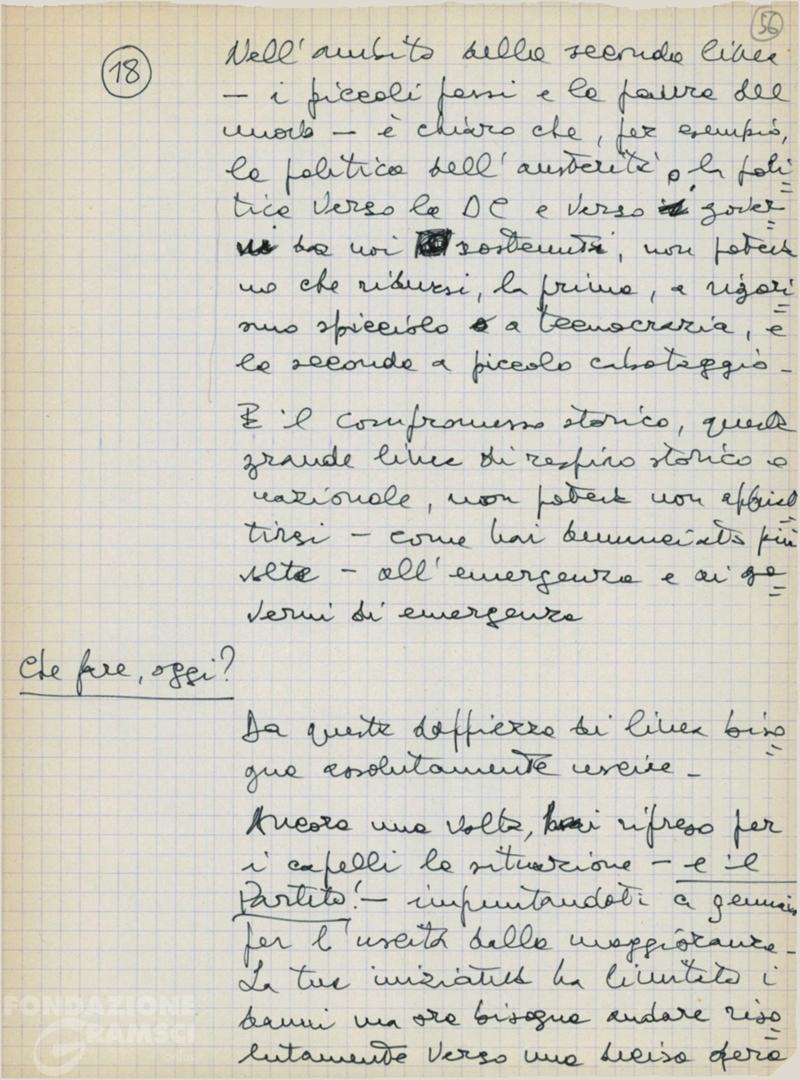 56
18
Nell'ambito della seconda linea
— i piccoli passi e la paura del
nuovo — è chiaro che, per esempio,
la politica dell'austerità, o la poli=
tica verso la DC e verso gover=
ni da noi sostenuti, non poteva
no che ridursi, la prima, a rigori=
smo spicciolo o a tecnocrazia, e
la seconda a piccolo cabotaggio -
E il compromesso storico, questa
grande linea di respiro storico e
nazionale, non poteva non appiat=
tirsi — come hai denunciato più
volte — all'emergenza e ai go=
verni di emergenza
Che fare, oggi?
Da questa doppiezza di linea biso=
gna assolutamente uscire -
Ancora una volta, hai ripreso per
i capelli la situazione — e il
Partito! — impuntandoti a gennaio
per l'uscita dalla maggioranza -
La tua iniziativa ha limitato i
danni ma ora bisogna andare riso=
lutamente verso una decisa opera
FONDAZIONE
GRAMSCI